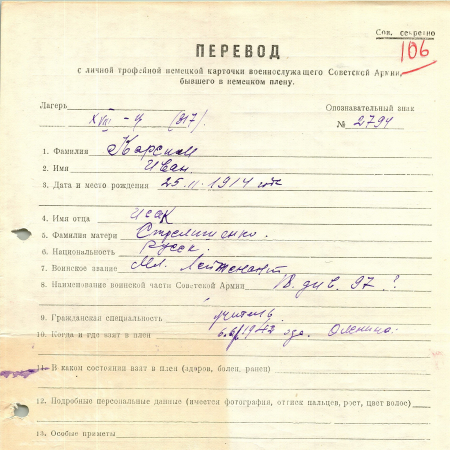 Сов. секретно
106
ПЕРЕВОД
с личной трофейной немецкой карточки военнослужащего Советской Армии,
бывшего в немецком плену.
Лагерь Опознавательный знак
XVIII - (317). № 2794
1. Фамилия
2. Имя Иван.
3. Дата и место рождения 25.11.1914 года
4. Имя отца Исак
5. Фамилия матери
6. Национальность Русск.
7. Воинское звание Мл. Лейтенант.
8. Наименование воинской части Советской Армии 18. див. 97. ?
9. Гражданская специальность учитель
10. Когда и где взят в плен 6.6/1942 Оленино.
11. В каком состоянии взят в плен (здоров, болен, ранен)
12. Подробные персональные данные (имеется фотография, оттиск пальцев, рост, цвет волос)
13. Особые приметы